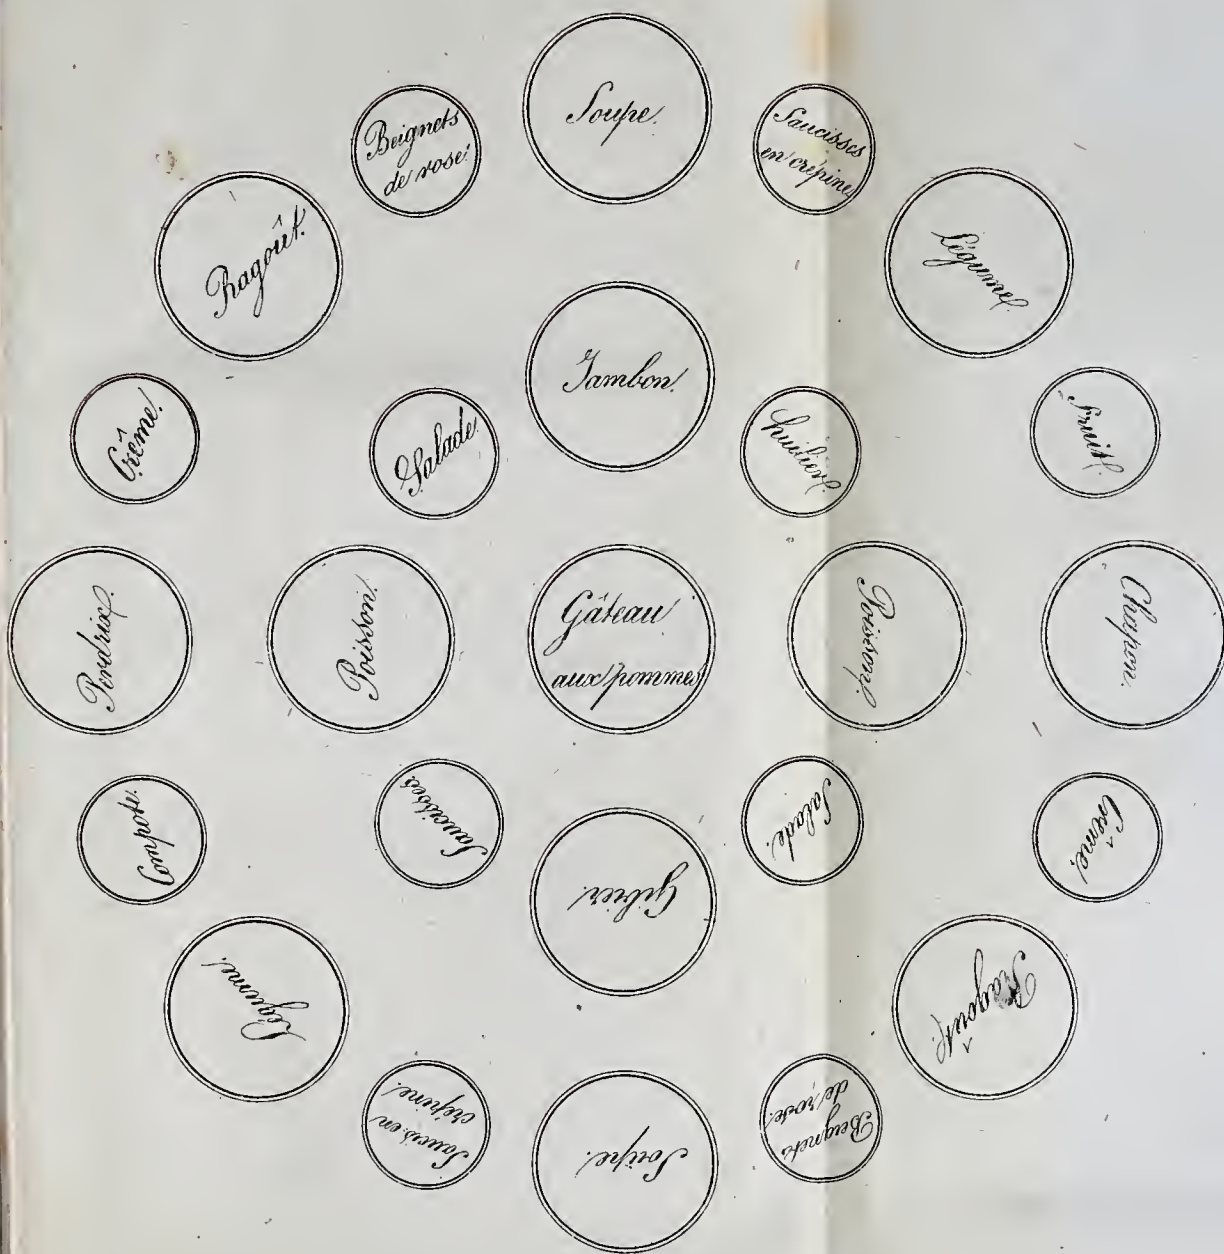 Soupe.
Beignets
de rose.
Saucisses
en crépine
Ragoût.
Légume.
Jambon.
Crême.
Salade.
Huilier.
Fruit.
Perdrix.
Poisson.
Gâteau
aux pommes
Poisson.
Chapon.
Compote.
Saucisses.
Salade.
Crême.
Gibier.
Légume.
Ragoût.
Saucis. en
crépine.
Soupe.
Beignets
de rose.